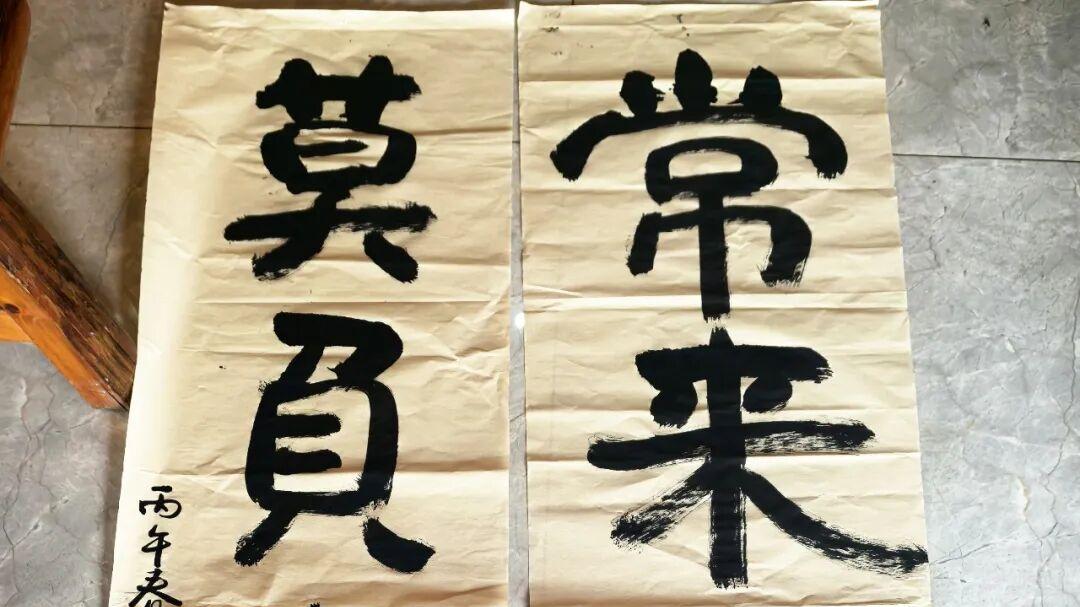 常来
莫负
丙午春